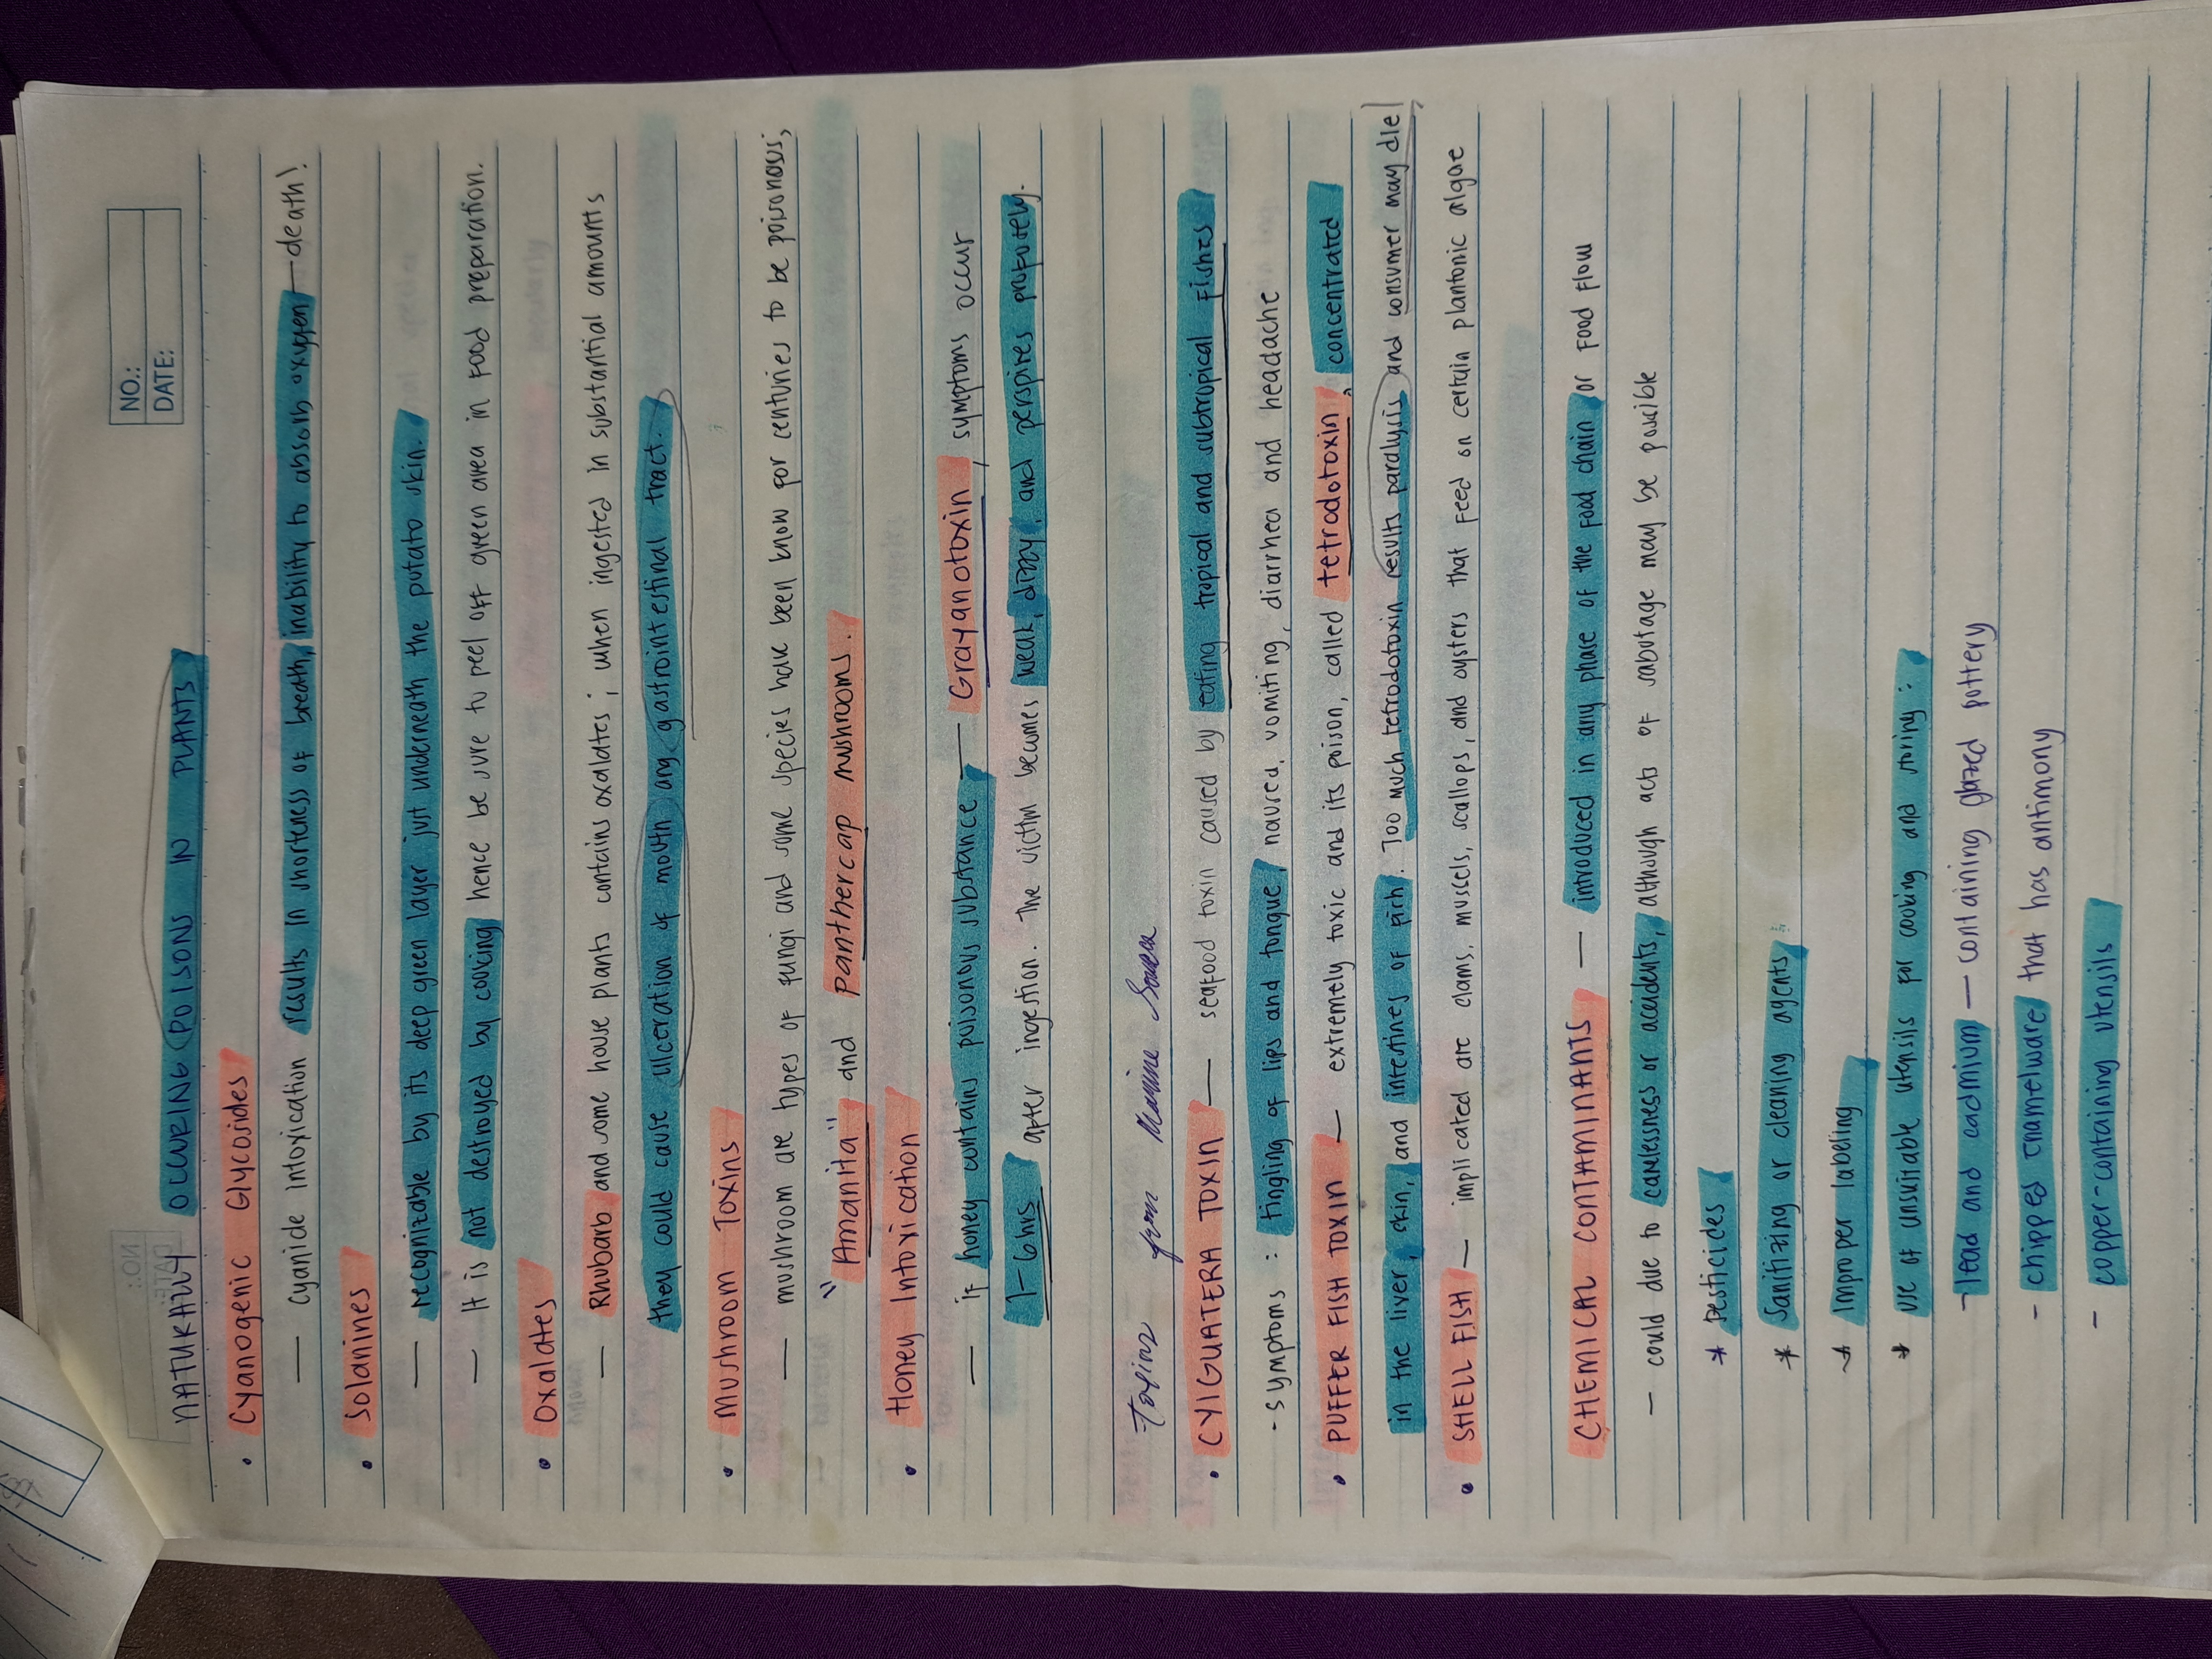 NO.:
DATE:
NATURALLY OCCURING POISONS IN PLANTS
• Cyanogenic Glycosides
— cyanide intoxication results in shorteness of breath, inability to absorb oxygen — death!
• Solanines
— recognizable by its deep green layer just underneath the potato skin.
— It is not destroyed by cooking hence be sure to peel off green area in food preparation.
• Oxalates
— Rhubarb and some house plants contains oxalates; when ingested in substantial amounts
they could cause ulceration of mouth ang gastrointestinal tract.
• Mushroom Toxins
— mushroom are types of fungi and some species have been know for centuries to be poisonous;
"Amanita" and panthercap mushrooms.
• Honey Intoxication
— if honey contains poisonous substance — Grayanotoxin, symptoms occur
1-6 hrs after ingestion. The victim becomes weak, dizzy, and perspires profusely.
Toxins from Marine Source
• CYIGUATERA TOXIN — seafood toxin caused by eating tropical and subtropical fishes
- symptoms : tingling of lips and tongue, naused, vomiting, diarrhea and headache
• PUFFER FISH TOXIN — extremely toxic and its poison, called tetrodotoxin, concentrated
in the liver, skin, and intestines of fish. Too much tetrodotoxin results paralysis and consumer may die!
• SHELL FISH — implicated are clams, muscels, scallops, and oysters that feed on certain plantonic algae
CHEMICAL CONTAMINANTS — introduced in any phase of the food chain or food flow
— could due to carelessness or accidents, although acts of sabotage may be possible
* Pesticides
* Sanitizing or cleaning agents
* Improper labeling
* use of unsuitable utensils for cooking and storing :
- lead and cadmium — containing glazed pottery
- chipped enamelware that has antimony
- copper-containing utensils